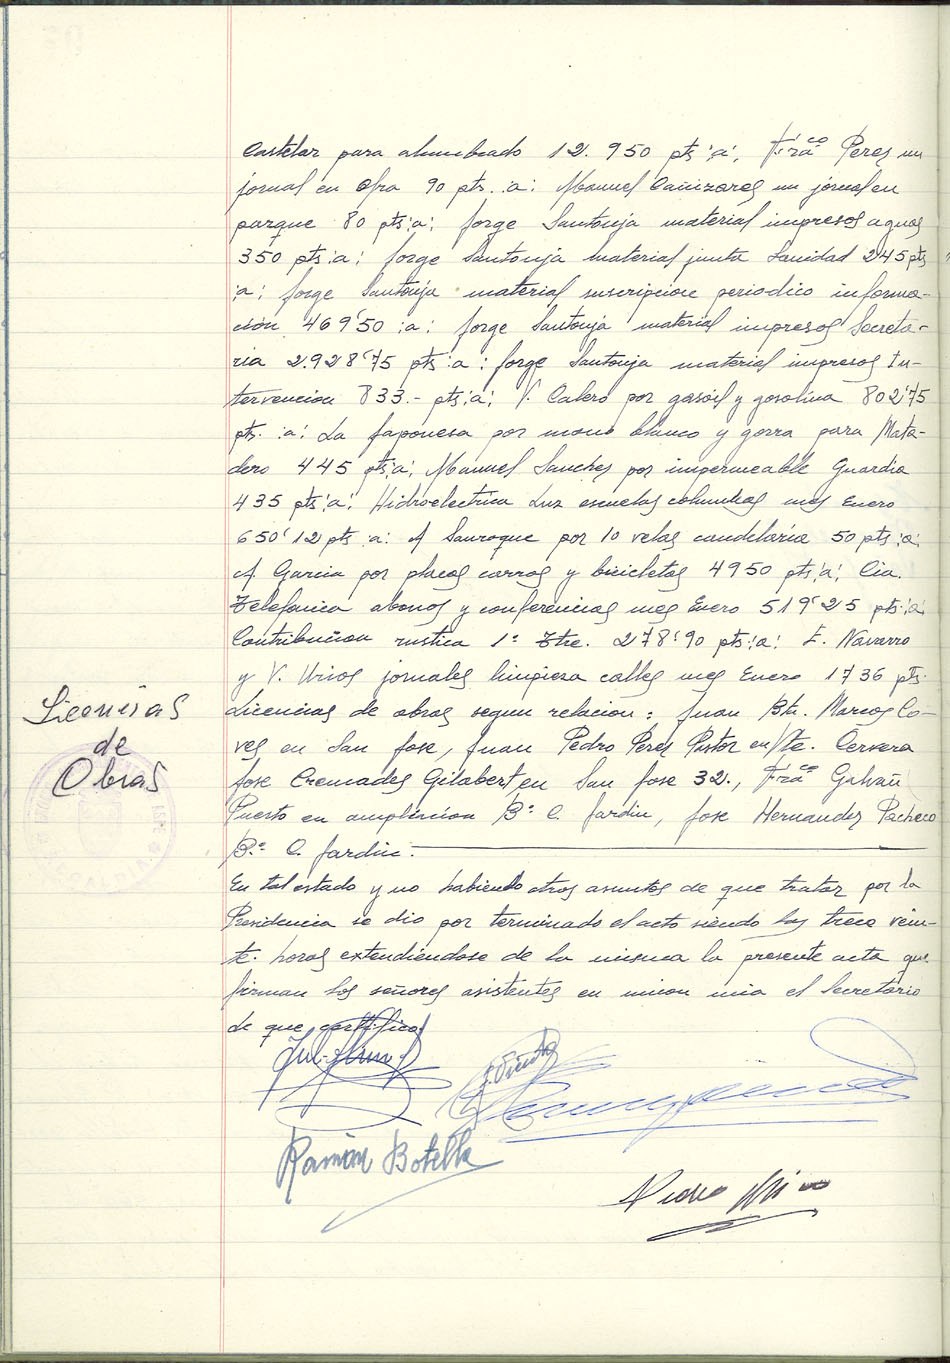 Castelar para alumbrado 12.950 pts :a:, Fraco Perez un
jornal en ofra 90 pts. :a: Manuel Cañizares un jornal en
parque 80 pts :a: Jorge Santonja material impresos aguas
350 pts :a: Jorge Santonja material junta Sanidad 245 pts
:a: Jorge Santonja material suscripcion periodico informa-
ción 469'50 :a: Jorge Santonja material impresos Secreta-
ria 2.928'75 pts :a: Jorge Santonja material impresos In-
tervencion 833.- pts :a: V. Calero por gasoil y gasolina 802'75
pts. :a: La Japonesa por mono blanco y gorra para Mata-
dero 445 pts :a: Manuel Sanchez por impermeable Guardia
435 pts :a: Hidroelectrica Luz escuelas columnas mes Enero
650'12 pts :a: A Sanroque por 10 velas candelaria 50 pts :a:
A. Garcia por placas carros y bicicletas 4950 pts :a: Cia.
Telefonica abonos y conferencias mes Enero 519'25 pts :a:
Contribucion rustica 1º Ztre. 278'90 pts :a: E. Navarro
y V. Urios jornales limpieza calles mes Enero 1736 pts.
Licencias
de
Obras
Licencias de obras segun relacion: Juan Bta. Marcos Co-
ves en San Jose, Juan Pedro Perez Pastor en Cervera
Jose Cremades Gilabert en San Jose 32., Fraco Galvañ
Puerto en ampliacion Bº C. Jardin, Jose Hernandez Pacheco
Bº C. Jardin.
En tal estado y no habiendo otros asuntos de que tratar por la
Presidencia se dio por terminado el acto siendo las trece vein-
te. horas extendiendose de la misma la presente acta que
firman los señores asistentes en union mia el Secretario
de que certifico
Ramón Botella
Pedro